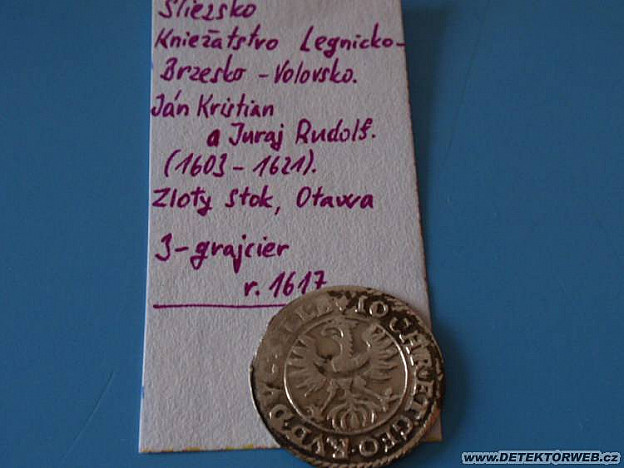 Sliezsko
Kniežatstvo Legnicko-
Brzesko - Volovsko.
Ján Kristian
a Juraj Rudolf.
(1603 - 1621).
Zloty Stok, Otawa
3-grajcier
r. 1617
IO CHR ET GEO RVD D
WWW.DETEKTORWEB.cz